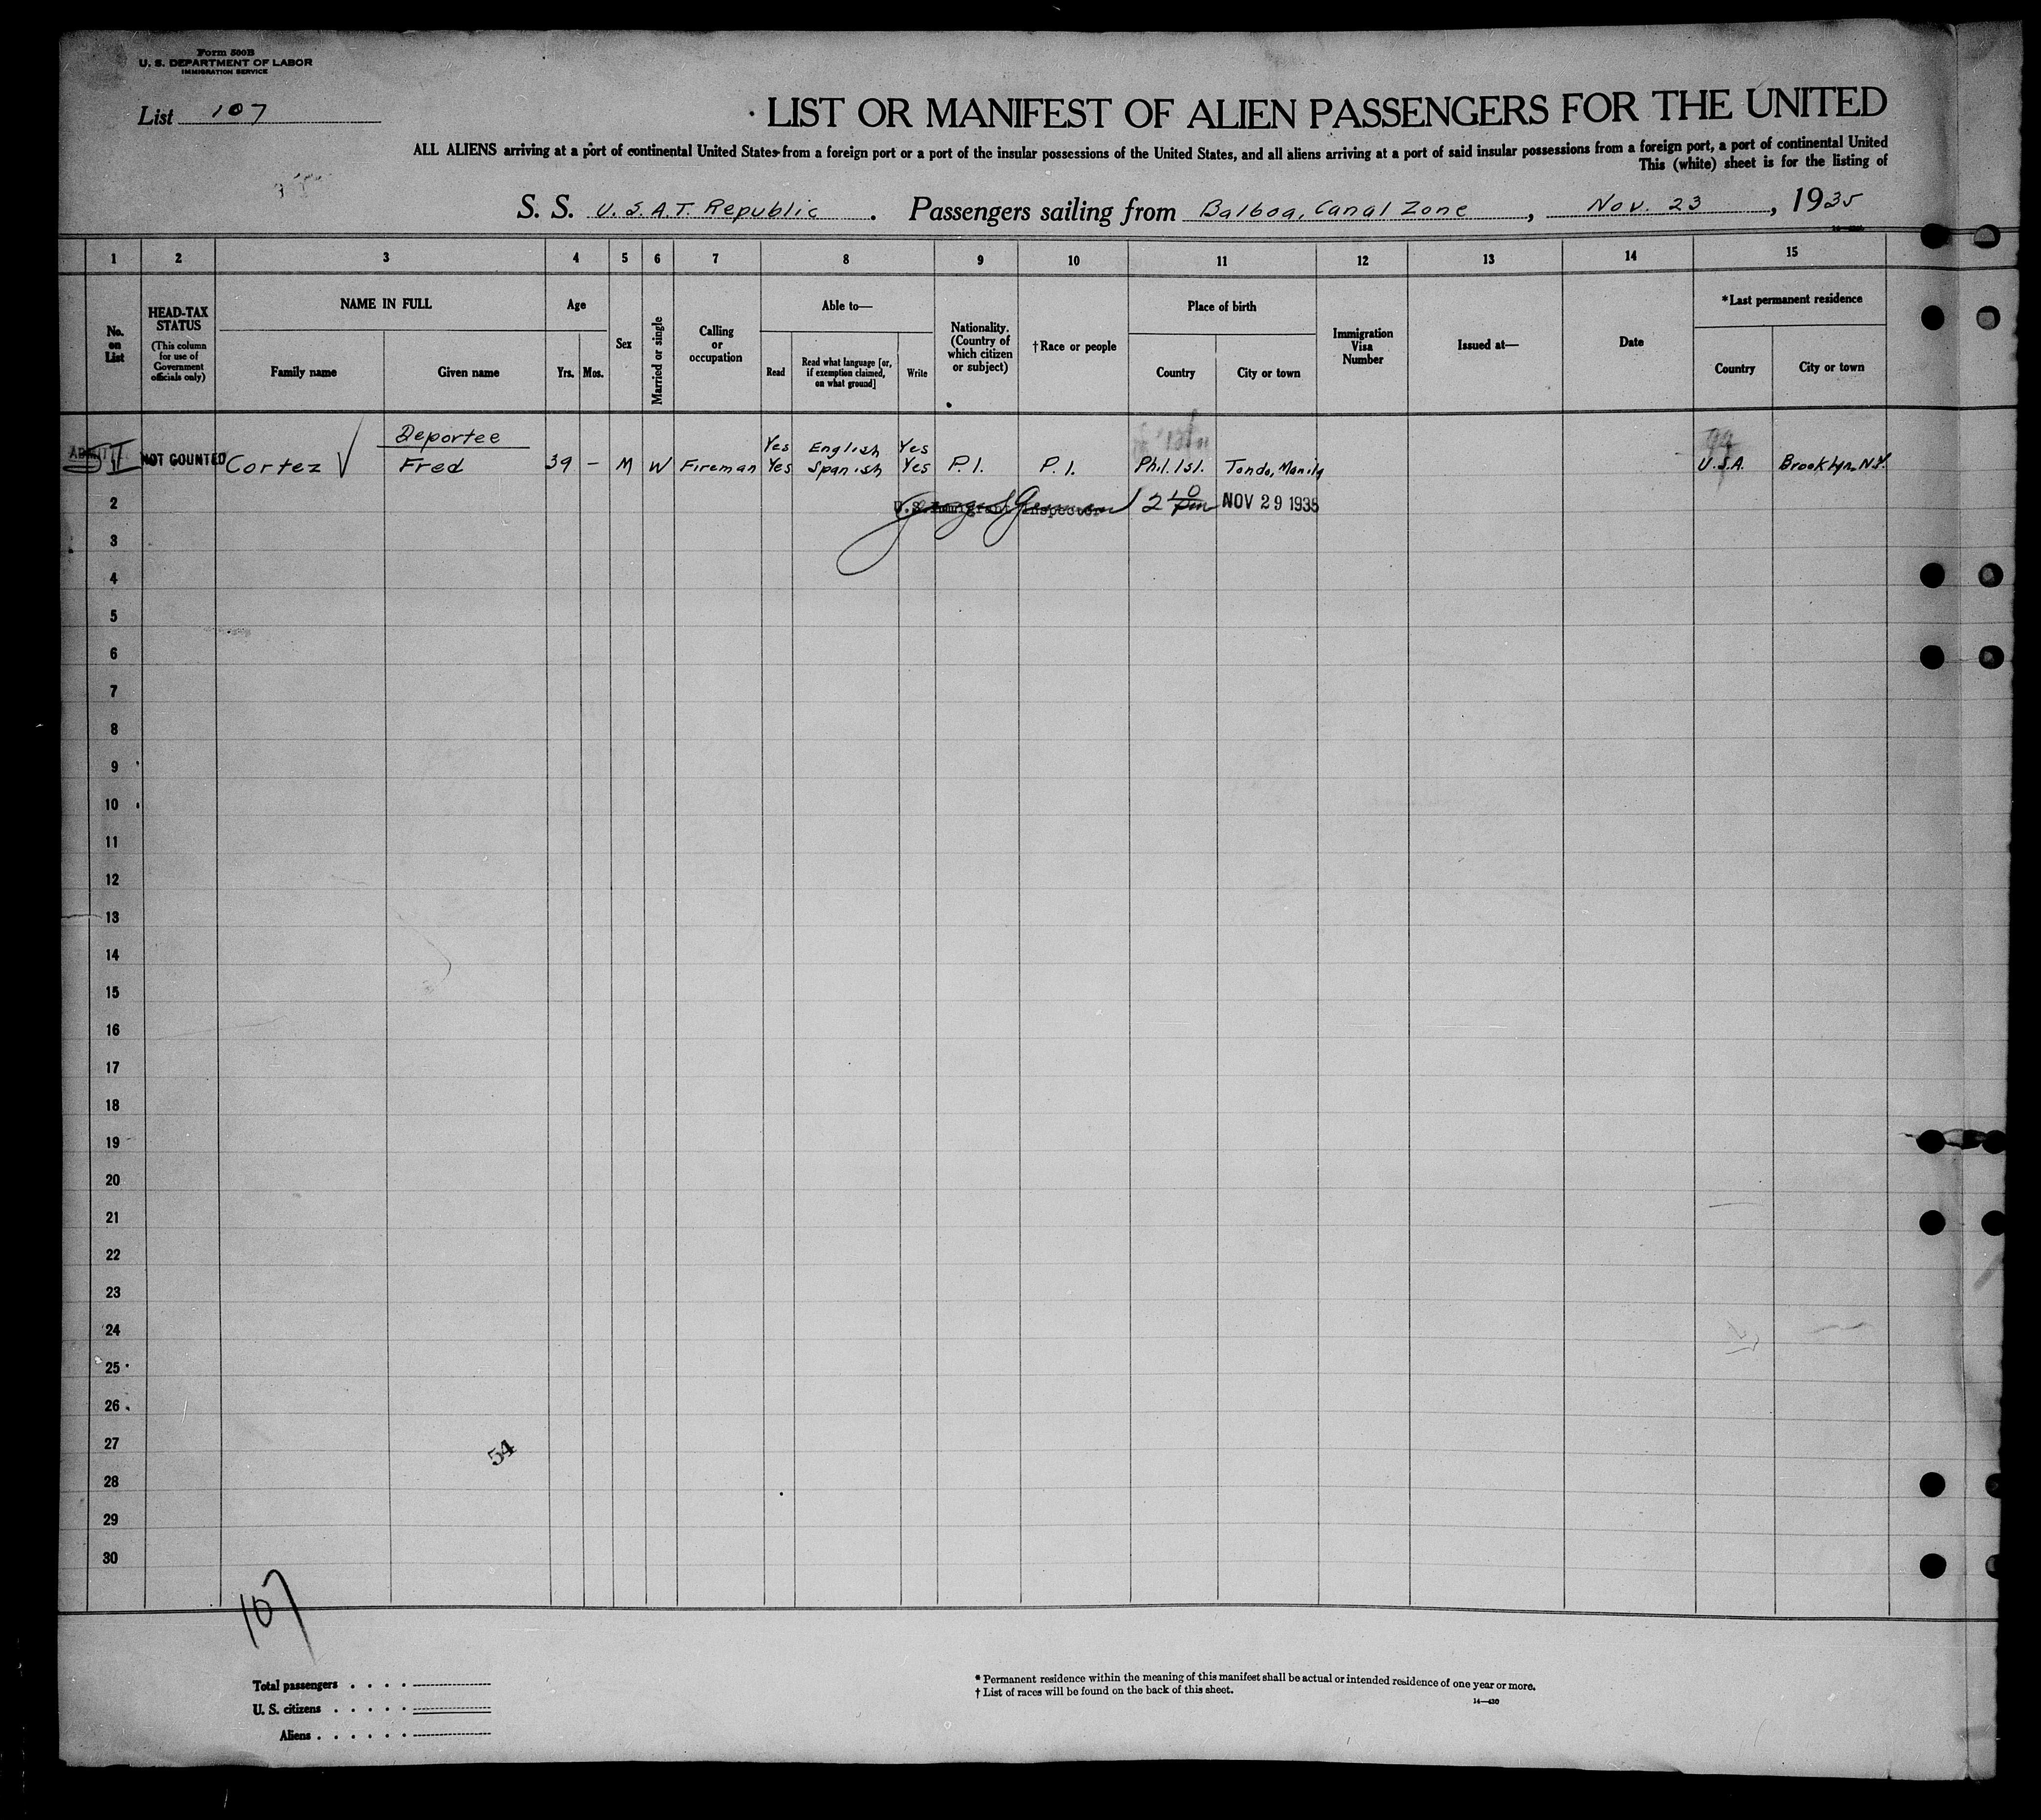 Form 500B
U. S. DEPARTMENT OF LABOR
IMMIGRATION SERVICE
List 107
LIST OR MANIFEST OF ALIEN PASSENGERS FOR THE UNITED
ALL ALIENS arriving at a port of continental United States from a foreign port or a port of the insular possessions of the United States, and all aliens arriving at a port of said insular possessions from a foreign port, a port of continental United
This (white) sheet is for the listing of
S. S. U.S.A.T. Republic. Passengers sailing from Balboa, Canal Zone, Nov. 23, 1935
1 2 3 4 5 6 7 8 9 10 11 12 13 14 15
No. on List
HEAD-TAX STATUS
(This column for use of Government officials only)
NAME IN FULL
Family name
Given name
Age
Yrs.
Mos.
Sex
Married or single
Calling or occupation
Able to—
Read
Read what language [or, if exemption claimed, on what ground]
Write
Nationality. (Country of which citizen or subject)
†Race or people
Place of birth
Country
City or town
Immigration Visa Number
Issued at—
Date
*Last permanent residence
Country
City or town
Deportee
Yes English Yes
NOT COUNTED Cortez Fred 39 – M W Fireman Yes Spanish Yes P.I. P.I. Phil. Isl. Tondo, Manila U.S.A. Brooklyn, N.Y.
2 NOV 29 1935
3
4
5
6
7
8
9
10
11
12
13
14
15
16
17
18
19
20
21
22
23
24
25
26
27
54
28
29
30
107
Total passengers
U. S. citizens
Aliens
* Permanent residence within the meaning of this manifest shall be actual or intended residence of one year or more.
† List of races will be found on the back of this sheet.
14—430